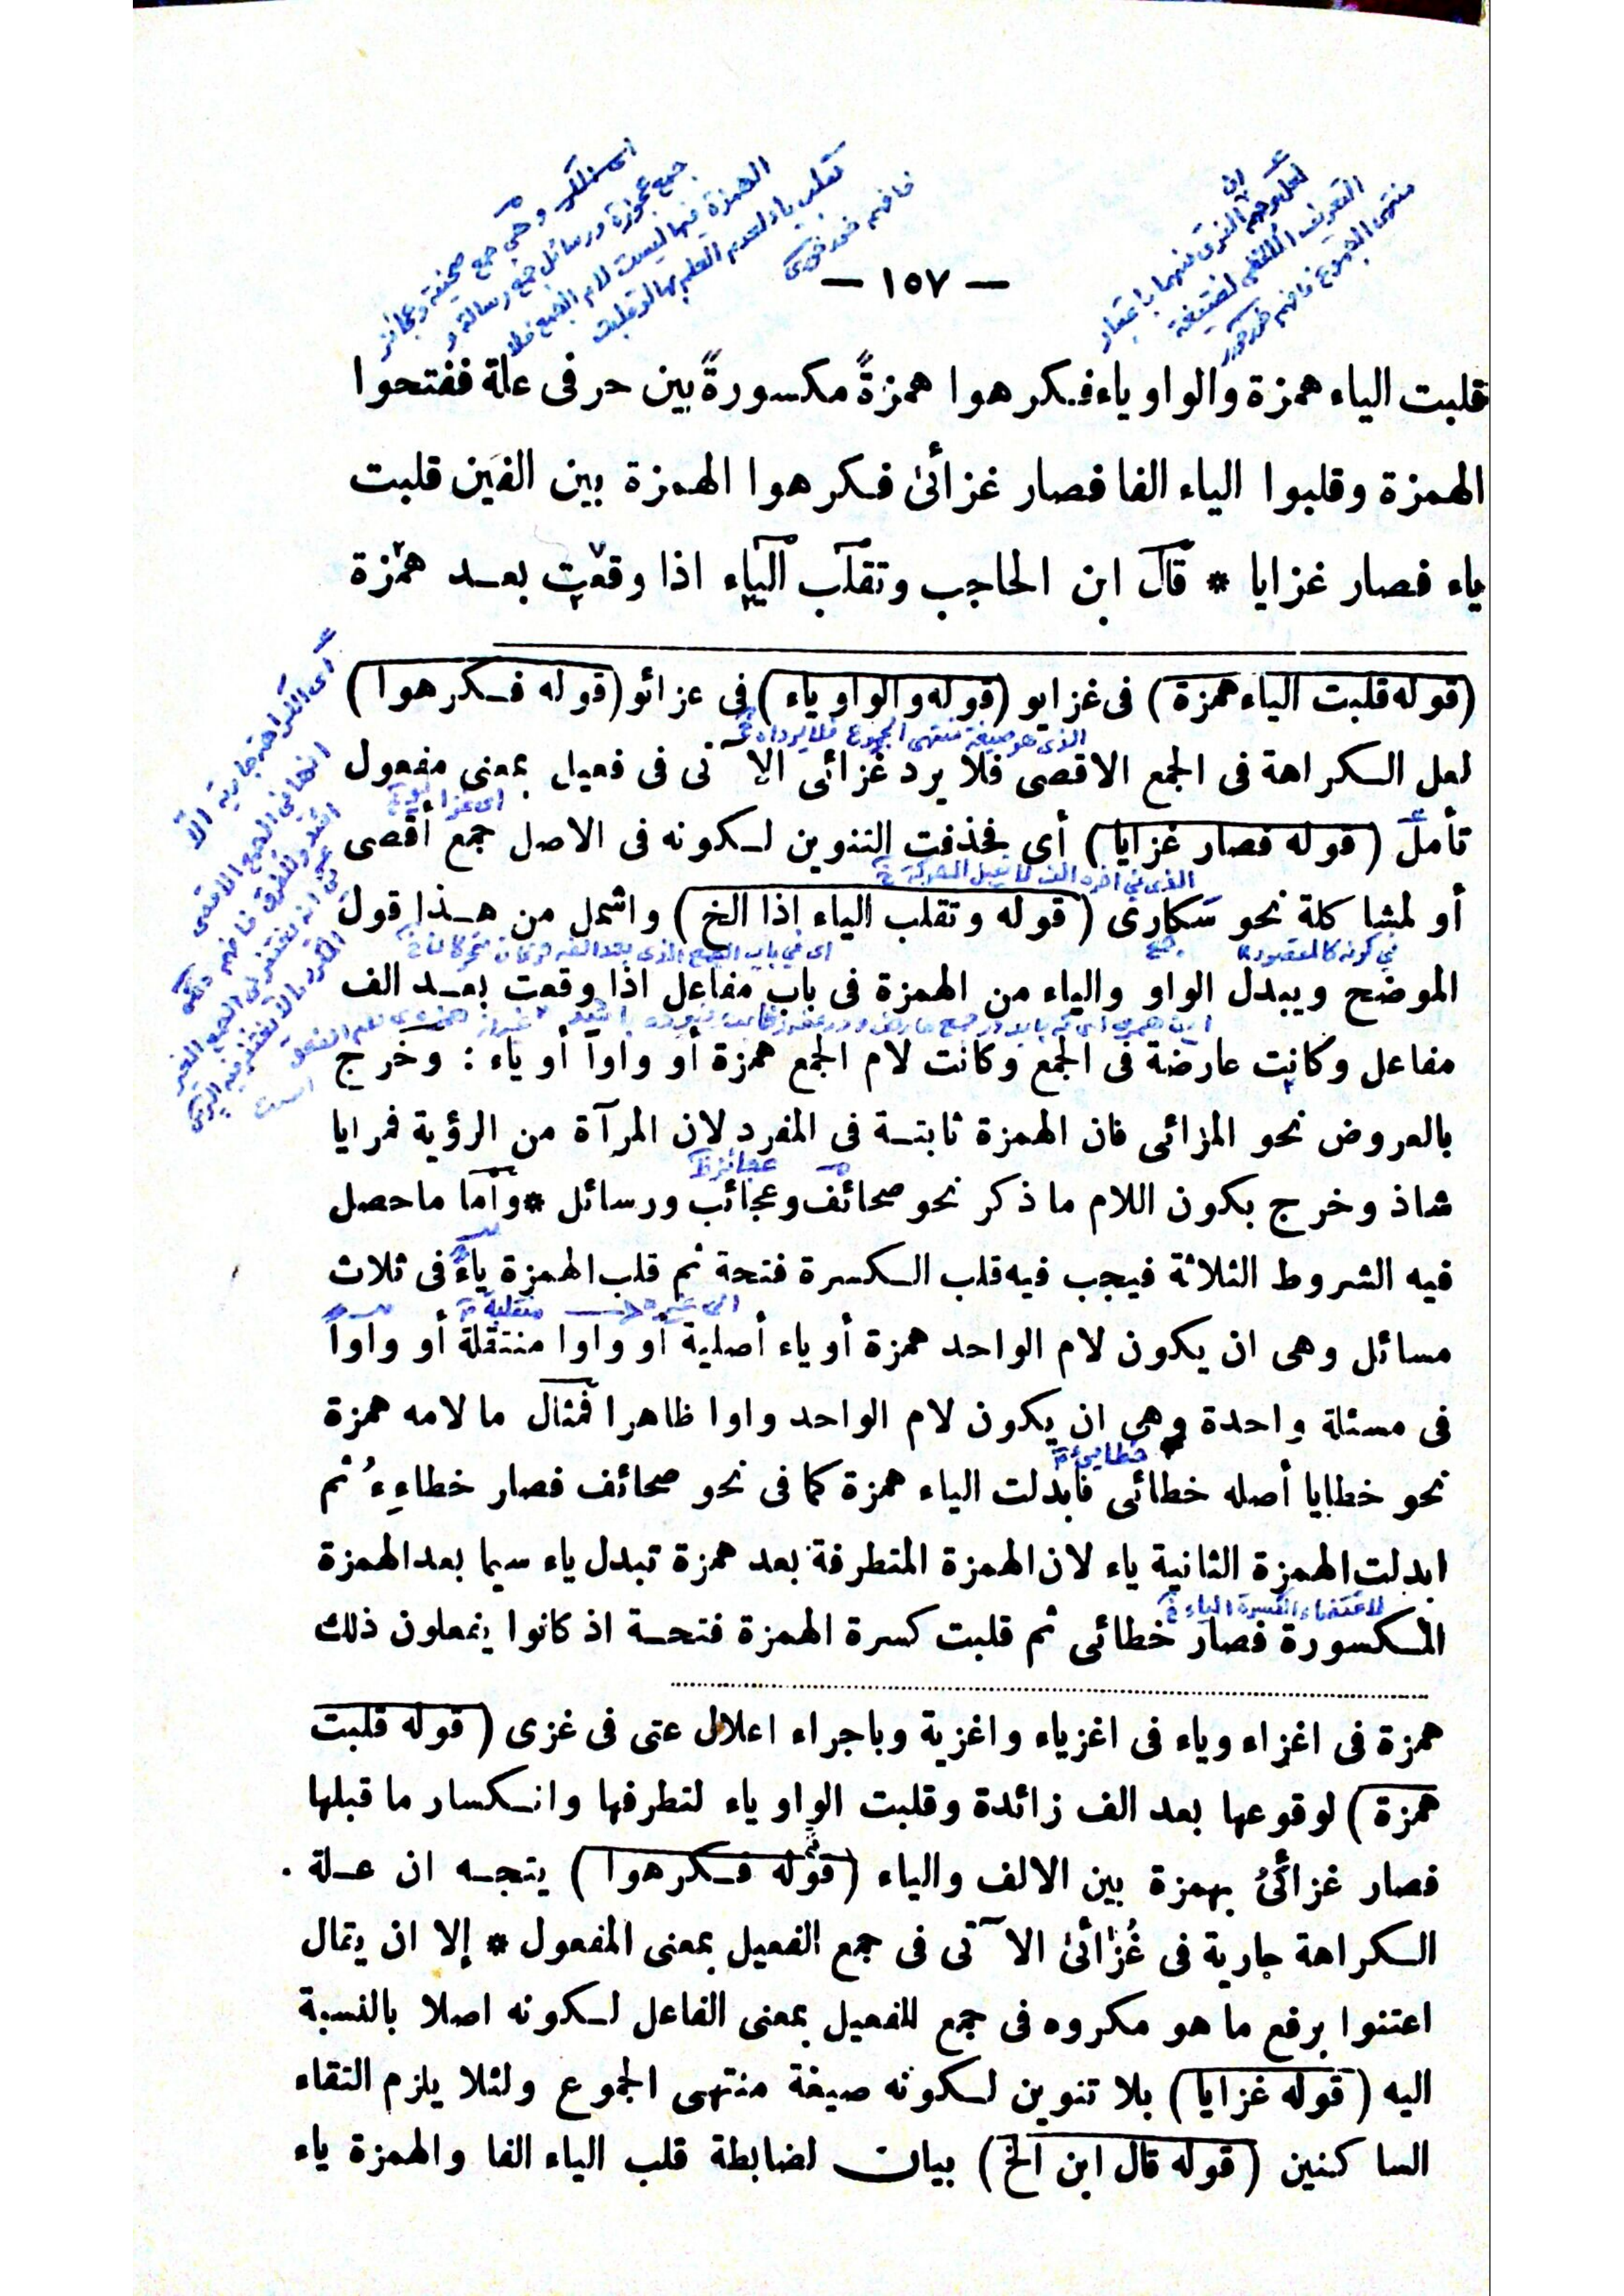 — ١٥٧ —
قلبت الياء همزة والواو ياء فكرهوا همزةً مكسورةً بين حرفى علة ففتحوا
الهمزة وقلبوا الياء الفا فصار غزأئى فكرهوا الهمزة بين الفين قلبت
ياء فصار غزايا * قال ابن الحاجب وتقلب الياء اذا وقعت بعد همزة
(قوله قلبت الياء همزة) فى غزايو (قوله والواو ياء) فى عزائو (قوله فكرهوا)
الذى هو صيغة منتهى الجموع فلا يرد
لعل الكراهة فى الجمع الاقصى فلا يرد غزائى الآتى فى فعيل بمعنى مفعول
تأمل (قوله فصار غزايا) أى فحذفت التنوين لكونه فى الاصل جمع أقصى
الذى فى اخره الف لا يقبل الحركة
أو لمشاكلة نحو سكارى (قوله وتقلب الياء اذا الخ) واشمل من هذا قول
فى كونه كالمقصور
الموضح ويبدل الواو والياء من الهمزة فى باب مفاعل اذا وقعت بعد الف
مفاعل وكانت عارضة فى الجمع وكانت لام الجمع همزة أو واوا أو ياء : وخرج
بالعروض نحو المزائى فان الهمزة ثابتة فى المفرد لان المرآة من الرؤية فمرايا
عجائز
شاذ وخرج بكون اللام ما ذكر نحو صحائف وعجائب ورسائل * وأما ماحصل
فيه الشروط الثلاثة فيجب فيه قلب الكسرة فتحة ثم قلب الهمزة ياءً فى ثلاث
منقلبة
مسائل وهى ان يكون لام الواحد همزة أو ياء أصلية أو واوا منتقلة أو واواً
فى مسئلة واحدة وهى ان يكون لام الواحد واوا ظاهرا فمثال ما لامه همزة
خطايئ
نحو خطايا أصله خطائى فابدلت الياء همزة كما فى نحو صحائف فصار خطاءِءُ ثم
ابدلت الهمزة الثانية ياء لان الهمزة المتطرفة بعد همزة تبدل ياء سيما بعد الهمزة
لاقتضاء الكسرة الياء
المكسورة فصار خطائى ثم قلبت كسرة الهمزة فتحة اذ كانوا يفعلون ذلك
همزة فى اغزاء وياء فى اغزياء واغزية وباجراء اعلال عتى فى غزى (قوله قلبت
همزة) لوقوعها بعد الف زائدة وقلبت الواو ياء لتطرفها وانكسار ما قبلها
فصار غزأئىُ بهمزة بين الالف والياء (قوله فكرهوا) يتجه ان علة
الكراهة جارية فى غُزأئى الآتى فى جمع الفعيل بمعنى المفعول * إلا ان يقال
اعتنوا برفع ما هو مكروه فى جمع للفعيل بمعنى الفاعل لكونه اصلا بالنسبة
اليه (قوله غزايا) بلا تنوين لكونه صيغة منتهى الجموع ولئلا يلزم التقاء
الساكنين (قوله قال ابن الخ) بيان لضابطة قلب الياء الفا والهمزة ياء